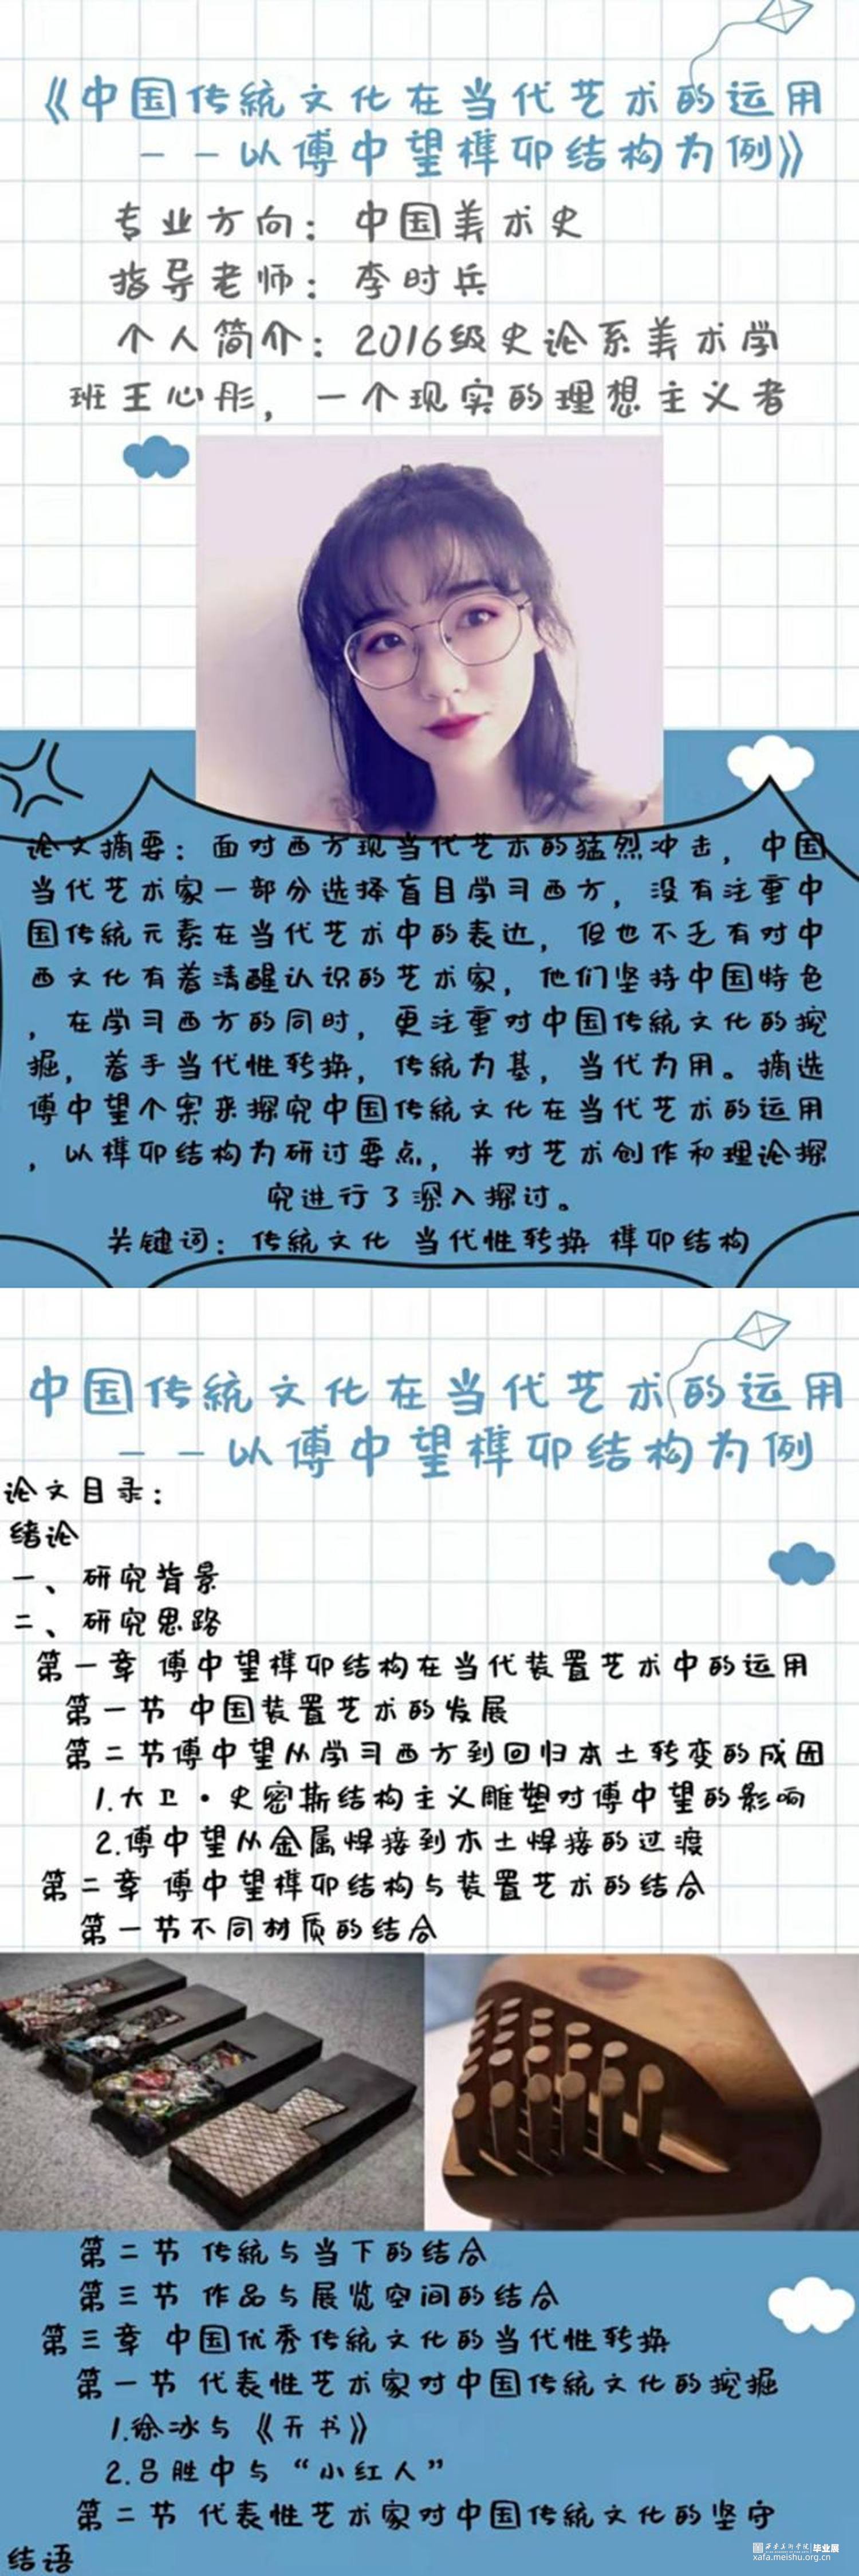 《中国传统文化在当代艺术的运用
——以傅中望榫卯结构为例》
专业方向：中国美术史
指导老师：李时兵
个人简介：2016级史论系美术学
班王心彤，一个现实的理想主义者
论文摘要：面对西方现当代艺术的猛烈冲击，中国
当代艺术家一部分选择盲目学习西方，没有注重中
国传统元素在当代艺术中的表达，但也不乏有对中
西文化有着清醒认识的艺术家，他们坚持中国特色
，在学习西方的同时，更注重对中国传统文化的挖
掘，着手当代性转换，传统为基，当代为用。摘选
傅中望个案来探究中国传统文化在当代艺术的运用
，以榫卯结构为研讨要点，并对艺术创作和理论探
究进行了深入探讨。
关键词：传统文化 当代性转换 榫卯结构
中国传统文化在当代艺术的运用
——以傅中望榫卯结构为例
论文目录：
绪论
一、研究背景
二、研究思路
第一章 傅中望榫卯结构在当代装置艺术中的运用
第一节 中国装置艺术的发展
第二节傅中望从学习西方到回归本土转变的成因
1.大卫·史密斯结构主义雕塑对傅中望的影响
2.傅中望从金属焊接到木土焊接的过渡
第二章 傅中望榫卯结构与装置艺术的结合
第一节不同材质的结合
第二节 传统与当下的结合
第三节 作品与展览空间的结合
第三章 中国优秀传统文化的当代性转换
第一节 代表性艺术家对中国传统文化的挖掘
1.徐冰与《天书》
2.吕胜中与“小红人”
第二节 代表性艺术家对中国传统文化的坚守
结语
西安美术学院 毕业展
xafa.meishu.org.cn